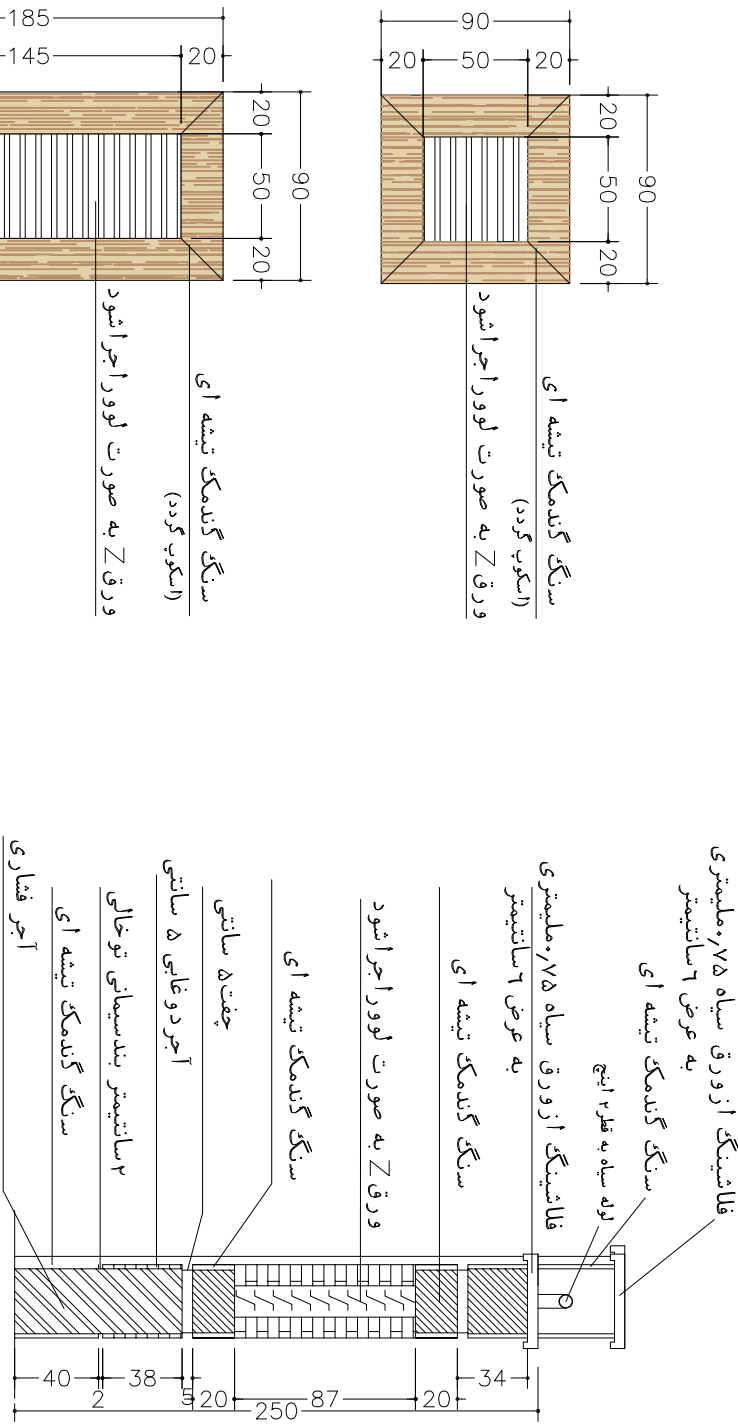 185
145
20
20
50
20
90
سنگ گندمک تیشه ای
(اسکوپ گردد)
ورق Z به صورت لوور اجرا شود
90
20
50
20
20
50
20
90
سنگ گندمک تیشه ای
(اسکوپ گردد)
ورق Z به صورت لوور اجرا شود
فلاشینگ از ورق سیاه ۰٫۷۵ میلیمتری
به عرض ۶ سانتیمتر
سنگ گندمک تیشه ای
لوله سیاه به قطر ۲ اینچ
فلاشینگ از ورق سیاه ۰٫۷۵ میلیمتری
به عرض ۶ سانتیمتر
سنگ گندمک تیشه ای
ورق Z به صورت لوور اجرا شود
سنگ گندمک تیشه ای
چفت ۵ سانتی
آجر دوغابی ۵ سانتی
۲ سانتیمتر بندسیمانی توخالی
سنگ گندمک تیشه ای
آجر فشاری
40
2
38
5
20
87
20
34
250